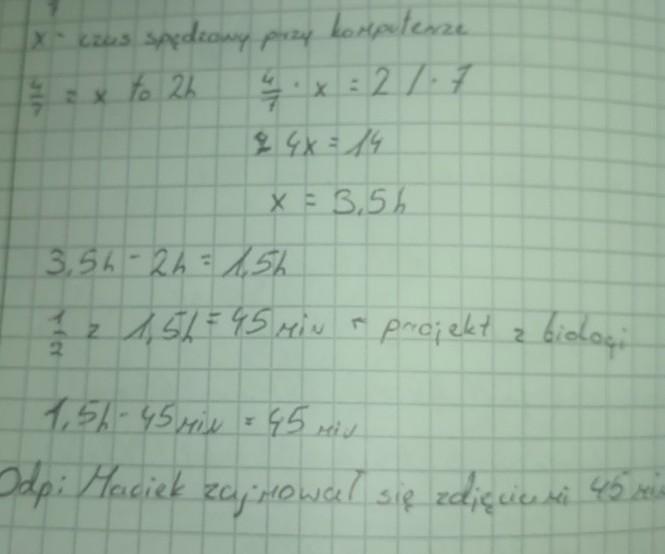 x - czas spędzony przy komputerze
4/7 z x to 2h 4/7 · x = 2 / · 7
4x = 14
x = 3,5h
3,5h - 2h = 1,5h
1/2 z 1,5h = 45 min - projekt z biologi
1,5h - 45 min = 45 min
Odp: Maciek zajmował się zdjęciami 45 min